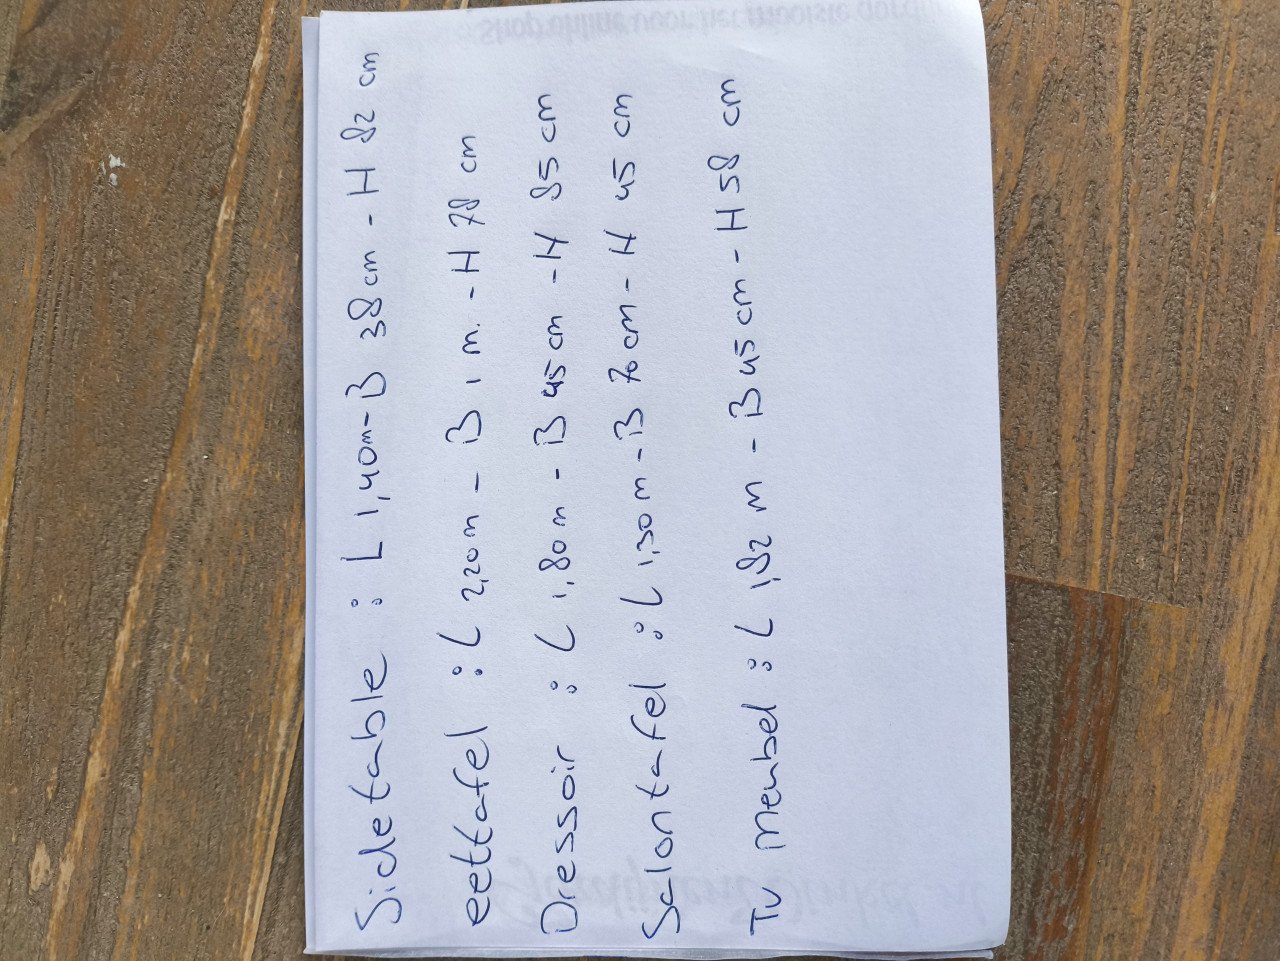 Sidetable : L 1,40m - B 38cm - H 82 cm
eettafel : L 2,20m - B 1 m. - H 78 cm
Dressoir : L 1,80m - B 45cm - H 85cm
Salontafel : L 1,30m - B 70cm - H 45 cm
Tv meubel : L 1,82 m - B 45cm - H 58 cm